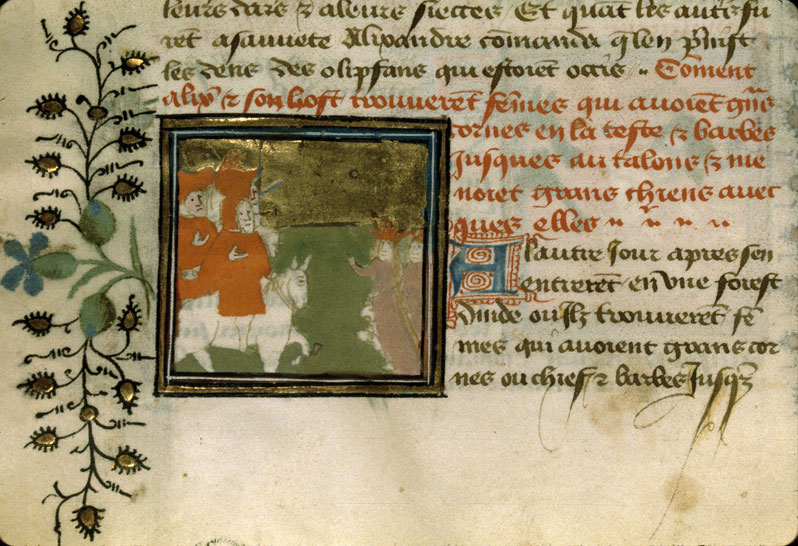 leurs dars & a leurs sieetes Et quāt les autr̄s fu
rēt a sauuete Alixandre cōmanda q̄ len p̄nist
les dens des olipfans qui estoiēt occis ·· Cōment
alix̄ & son host trouuerēt fēmes qui auoiēt g̃ns
cornes en la teste & barbes
Jusques au talons & me
noiēt grans chiens auec
ques elles
A lautre Jour apres sen
entrerēt en vne forest
dinde ou Ilz trouuerēt fē
mes qui auoient grans cor
nes ou chief & barbes Jusq̄z